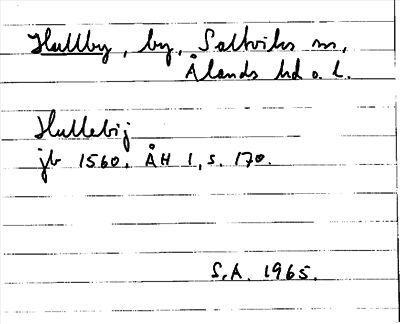 Hullby, by, Saltviks sn,
Ålands hd o. l.
Hullebij
jb 1560. ÅH 1, s. 170.
S.A. 1965.